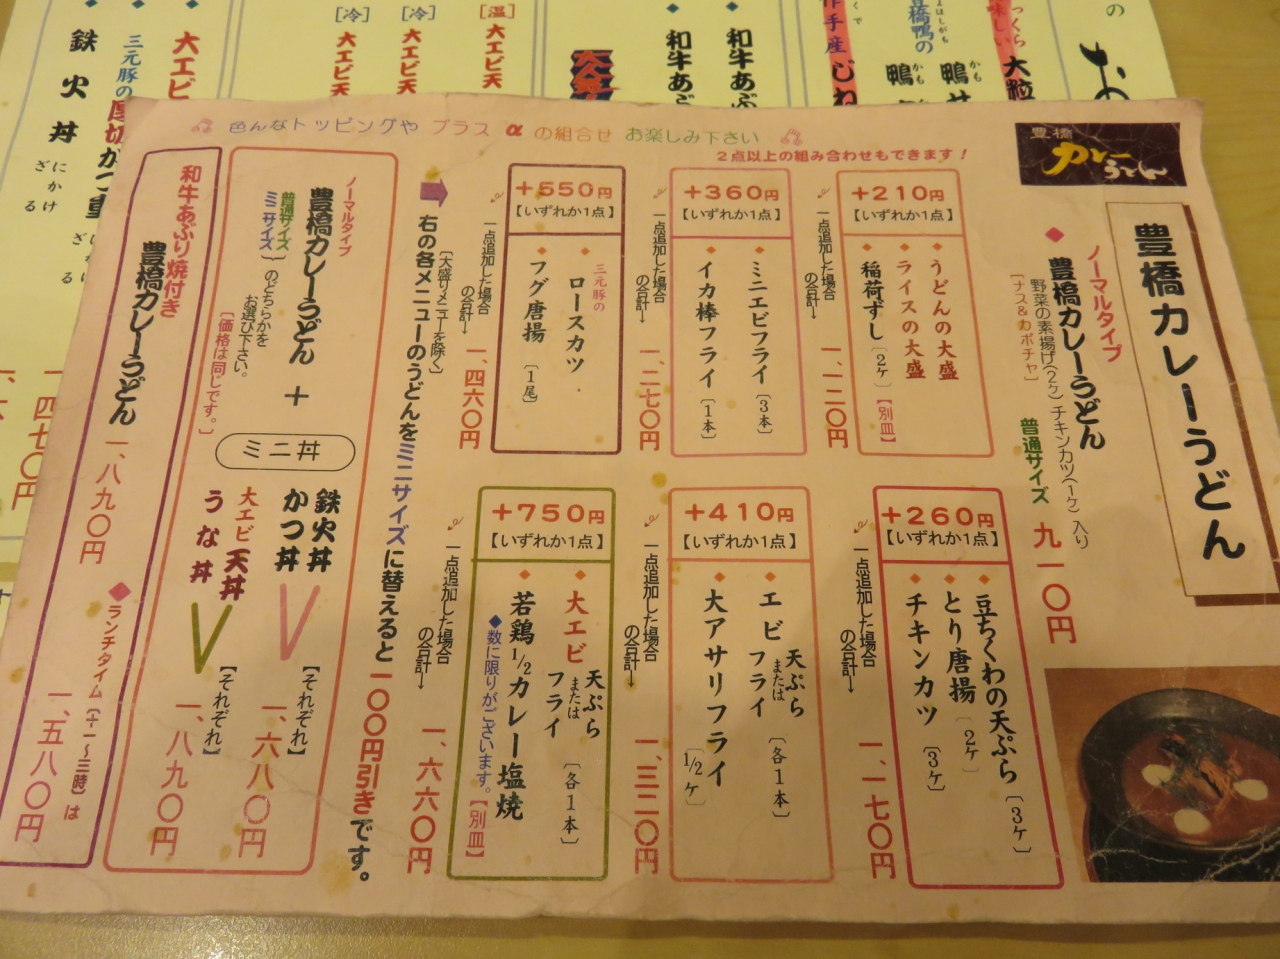 色んなトッピングや プラス α の組合せ お楽しみ下さい
2点以上の組み合わせもできます!
豊橋
カレーうどん
豊橋カレーうどん
ノーマルタイプ
◆豊橋カレーうどん
野菜の素揚げ(2ヶ)チキンカツ(1ヶ)入り
[ナス&カボチャ]
普通サイズ 九一〇円
+210円
【いずれか1点】
◆うどんの大盛
◆ライスの大盛
◆稲荷ずし[2ケ]【別皿】
一点追加した場合の合計→
一、一二〇円
+360円
【いずれか1点】
◆ミニエビフライ[3本]
◆イカ棒フライ[1本]
一点追加した場合の合計→
一、二七〇円
+550円
【いずれか1点】
三元豚の
◆ロースカツ
◆フグ唐揚[1尾]
一点追加した場合の合計→
一、四六〇円
+260円
【いずれか1点】
◆豆ちくわの天ぷら[3ケ]
◆とり唐揚[2ケ]
◆チキンカツ[3ケ]
一点追加した場合の合計→
一、一七〇円
+410円
【いずれか1点】
◆エビ 天ぷら または フライ[各1本]
◆大アサリフライ[1/2ケ]
一点追加した場合の合計→
一、三二〇円
+750円
【いずれか1点】
◆大エビ 天ぷら または フライ[各1本]
◆若鶏1/2カレー塩焼【別皿】
◆数に限りがございます。
一点追加した場合の合計→
一、六六〇円
右の各メニューのうどんをミニサイズに替えると一〇〇円引きです。
[大盛りメニューを除く]
ノーマルタイプ
豊橋カレーうどん +
普通サイズ
ミニサイズ
のどちらかをお選び下さい。
[価格は同じです。]
ミニ丼
鉄火丼
かつ丼
【それぞれ】
一、六八〇円
大エビ天丼
うな丼
【それぞれ】
一、八九〇円
和牛あぶり焼付き
豊橋カレーうどん 一、八九〇円
◆ランチタイム[十一〜三時]は
一、五八〇円
大粒
鴨
豊橋鴨の
◆和牛あぶ
◆和牛あぶ
[温]
大エビ天
[冷]
大エビ天
[冷]
大エビ天
◆大エビ
◆三元豚の
厚切かつ重
◆鉄火丼